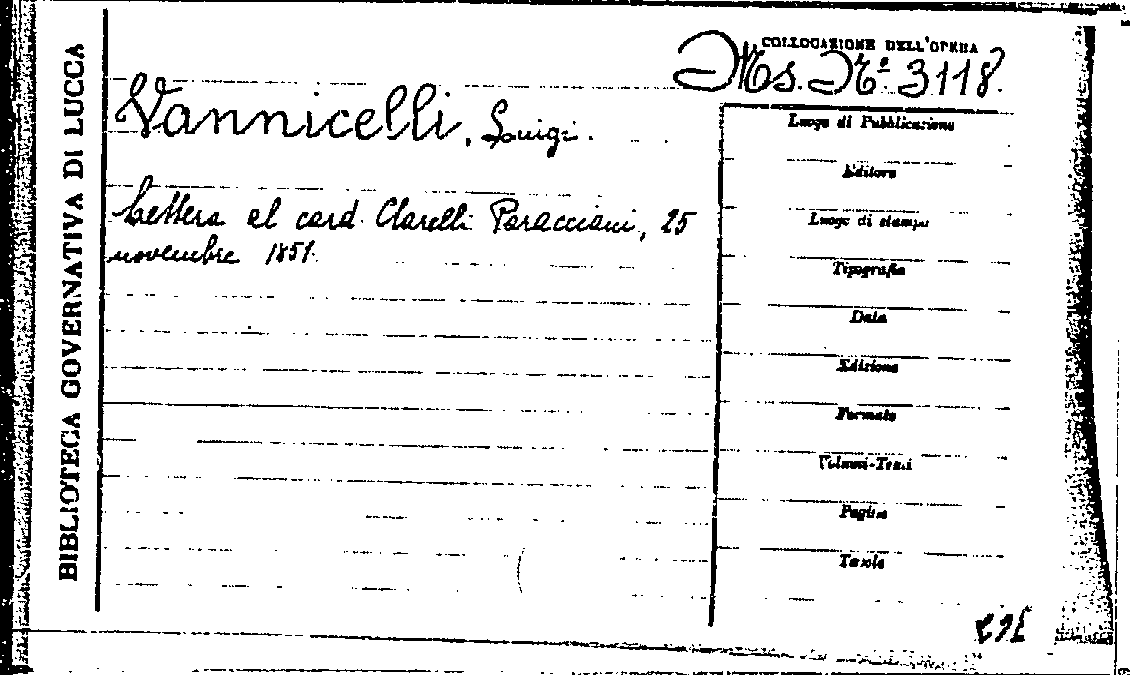 BIBLIOTECA GOVERNATIVA DI LUCCA
COLLOCAZIONE DELL'OPERA
Ms. N.º 3118.
Vannicelli, Luigi.
Lettera al card. Clarelli Paracciani, 25
novembre 1851.
Luogo di Pubblicazione
Editore
Luogo di stampa
Tipografia
Data
Edizione
Formato
Volumi-Tomi
Pagine
Tavole